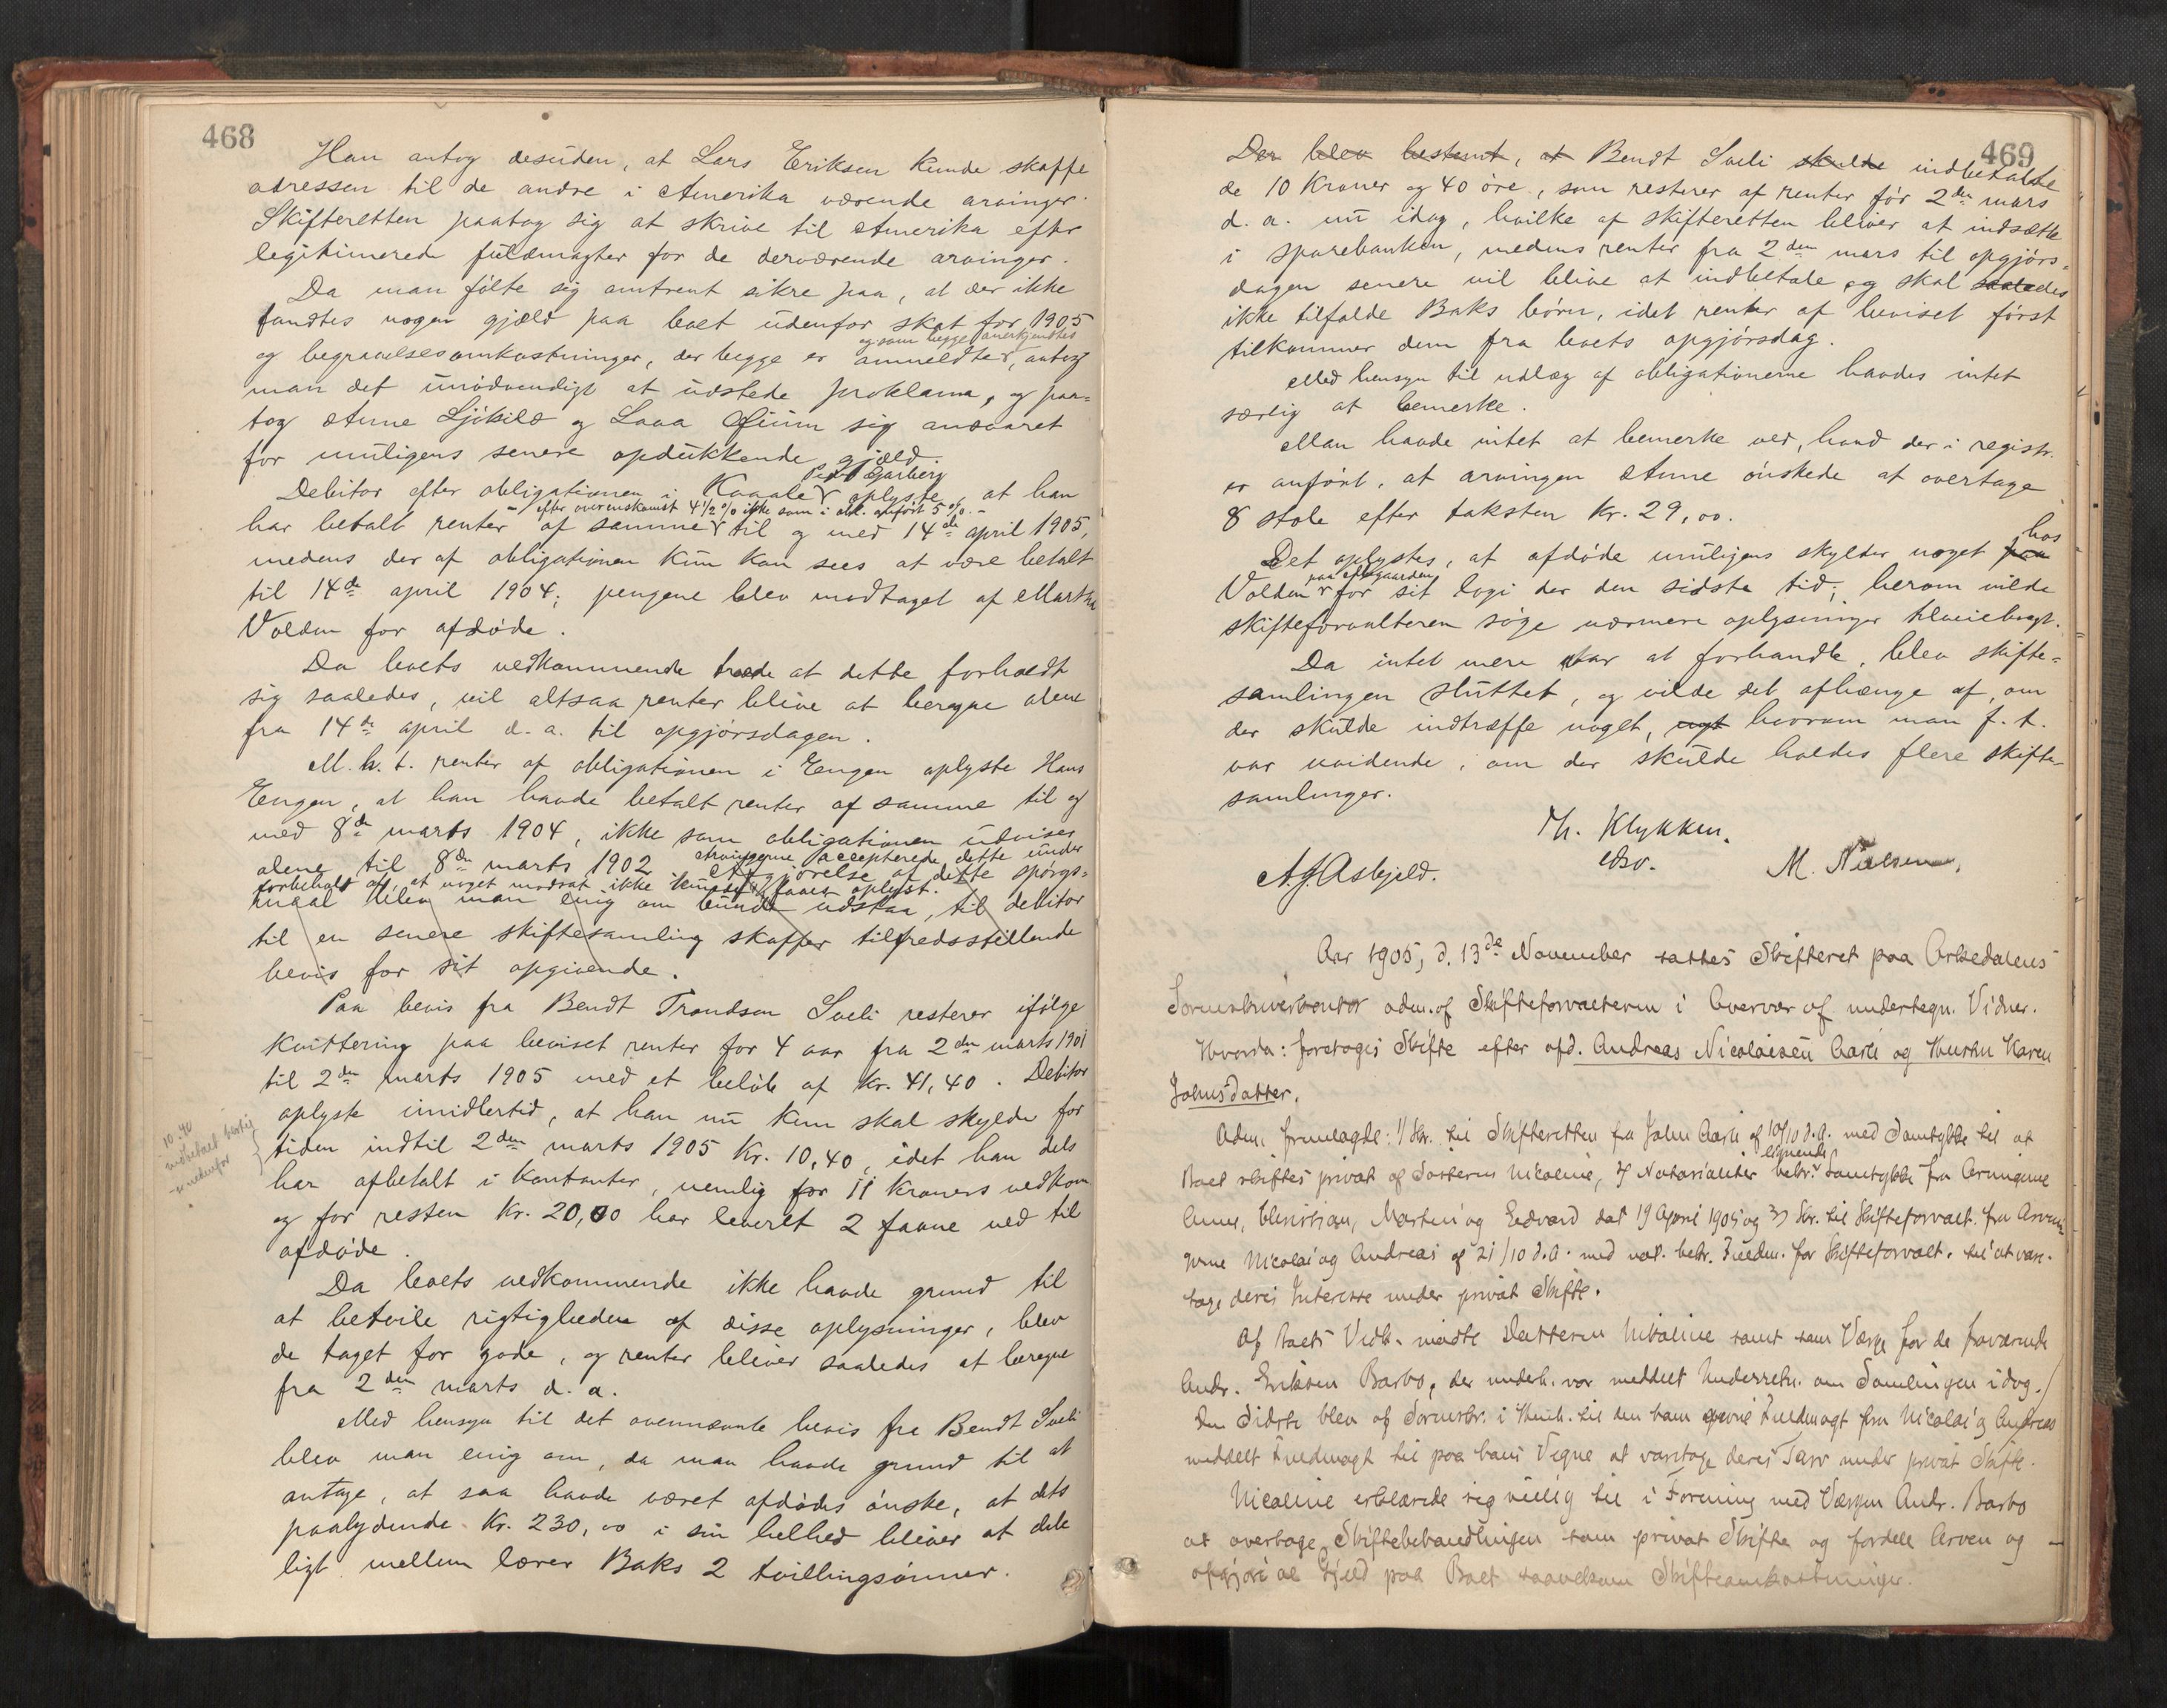 468
Han antog desuden, at Lars Eriksen kunde skaffe
adressen til de andre i Amerika værende arvinger.
Skifteretten paatog sig at skrive til Amerika efter
legitimerede fuldmagter for de derværende arvinger.
Da man følte sig omtrent sikre paa, at der ikke
fandtes nogen gjæld paa boet udenfor skat for 1905
og som begge anerkjendtes
og begravelsesomkostninger, der begge er anmeldte, antog
man det unødvendigt at udstede proklama, og paa-
tog Anne Ljøkild og Lava sig ansvaret
for muligens senere opdukkende gjæld.
Peder Garberg
Debitor efter obligationen i Kaaale oplyste, at han
efter overenskomst 4 1/2 % ikke som i obl. anført 5 %.
har betalt renter af samme til og med 14de april 1905,
medens der af obligationen kun kan sees at være betalt
til 14de april 1904; pengene blev modtaget af Marthe
Volden for afdøde.
Da boets vedkommende troede at dette forholdt
sig saaledes, vil altsaa renter blive at beregne alene
fra 14de april d. a. til opgjørsdagen.
M. h. t. renter af obligationen i Engen oplyste Hans
Engen, at han havde betalt renter af samme til og
med 8de marts 1904, ikke som obligationen udviser
alene til 8de marts 1902. Arvingerne accepterede dette under
Afgjørelse af dette spørgs-
forbehold af, at noget modsat ikke kunde faaes oplyst.
maal blev man enig om kunde udstaa, til debitor
til en senere skiftesamling skaffer tilfredsstillende
bevis for sit opgivende.
Paa bevis fra Bendt Trondsen Sveli resterer ifølge
kvittering paa beviset renter for 4 aar fra 2den marts 1901
til 2den marts 1905 med et beløb af kr. 41,40. Debitor
oplyste imidlertid, at han nu kun skal skylde for
10.40
tiden indtil 2den marts 1905 kr. 10,40, idet han dels
har afbetalt i kontanter, nemlig for 11 kroners vedkom
og for resten kr. 20,00 har leveret 2 favne ved til
afdøde.
Da boets vedkommende ikke havde grund til
at betvile rigtigheden af disse oplysninger, blev
de taget for gode, og renter bliver saaledes at beregne
fra 2den marts d. a.
Med hensyn til det ovennævnte bevis fra Bendt Sveli
blev man enig om, da man havde grund til at
antage, at saa havde været afdødes ønske, at dets
paalydende kr. 230,00 i sin helhed bliver at dele
ligt mellem lærer Baks 2 tvillingsønner.
469
Der blev bestemt, at Bendt Sveli skulde indbetalte
de 10 kroner og 40 øre, som resterer af renter før 2den mars
d. a. nu idag, hvilke af skifteretten bliver at indsætte
i sparebanken, medens renter fra 2den mars til opgjørs-
dagen senere vil blive at indbetale og skal saaledes
ikke tilfalde Baks børn, idet renter af beviset først
tilkommer dem fra boets opgjørsdag.
Med hensyn til udlæg af obligationerne havdes intet
særlig at bemerke.
Man havde intet at bemerke ved, hvad der i registr.
er anført, at arvingen Anne ønskede at overtage
8 stole efter taksten kr. 29,00.
hos
Det oplystes, at afdøde muligens skylder noget fra
Volden for sit logi der den sidste tid; herom vilde
skifteforvalteren søge nærmere oplysninger tilveiebragt.
Da intet mere var at forhandle, blev skifte-
samlingen sluttet, og vilde det afhænge af, om
der skulde indtræffe noget, hvorom man f. t.
var uvidende, om der skulde holdes flere skifte-
samlinger.
Th. Klykken.
A. J. Asbjeld.
M. Nielsen.
Aar 1905, d. 13de November sattes Skifteret paa Orkedalens
Sorenskriverkontor adm. af Skifteforvalteren i Overvær af undertegn. Vidner.
Hvorda: foretoges Skifte efter afd. Andreas Nicolaisen Aarli og Hustru Karen
Johnsdatter.
Adm. fremlagde: 1) Skr. til Skifteretten fra John Aarli af 10/10 d. A. med Samtykke til at
lignende
Boet skiftes privat af Søsteren Nicoline, 2) Notarialiter bekr. Samtykke fra Arvingerne
Anne, Christian, Martin og Edvard dat 19 April 1905 og 3) Skr. til Skifteforvalt. fra Arvin-
gerne Nicolai og Andreas af 21/10 d. A. med not. bekr. Fuldm. for Skifteforvalt. til at vare-
tage deres Interesse under privat Skifte.
Af Boets Vedk. mødte Datteren Nicoline samt som Værge for de fraværende
Andr. Eriksen Barbo, der underh. var meddelt Underretn. om Samlingen idag.
Den Sidste blev af Sorenskr. i Henh. til den ham givne Fuldmagt fra Nicolai og Andreas
meddelt Fuldmagt til paa hans Vegne at varetage deres Tarv under privat Skifte.
Nicoline erklærede sig villig til i Forening med Værgen Andr. Barbo
at overtage Skiftebehandlingen som privat Skifte og fordele Arven og
opgjøre al Gjæld paa Boet saavelsom Skifteomkostninger.